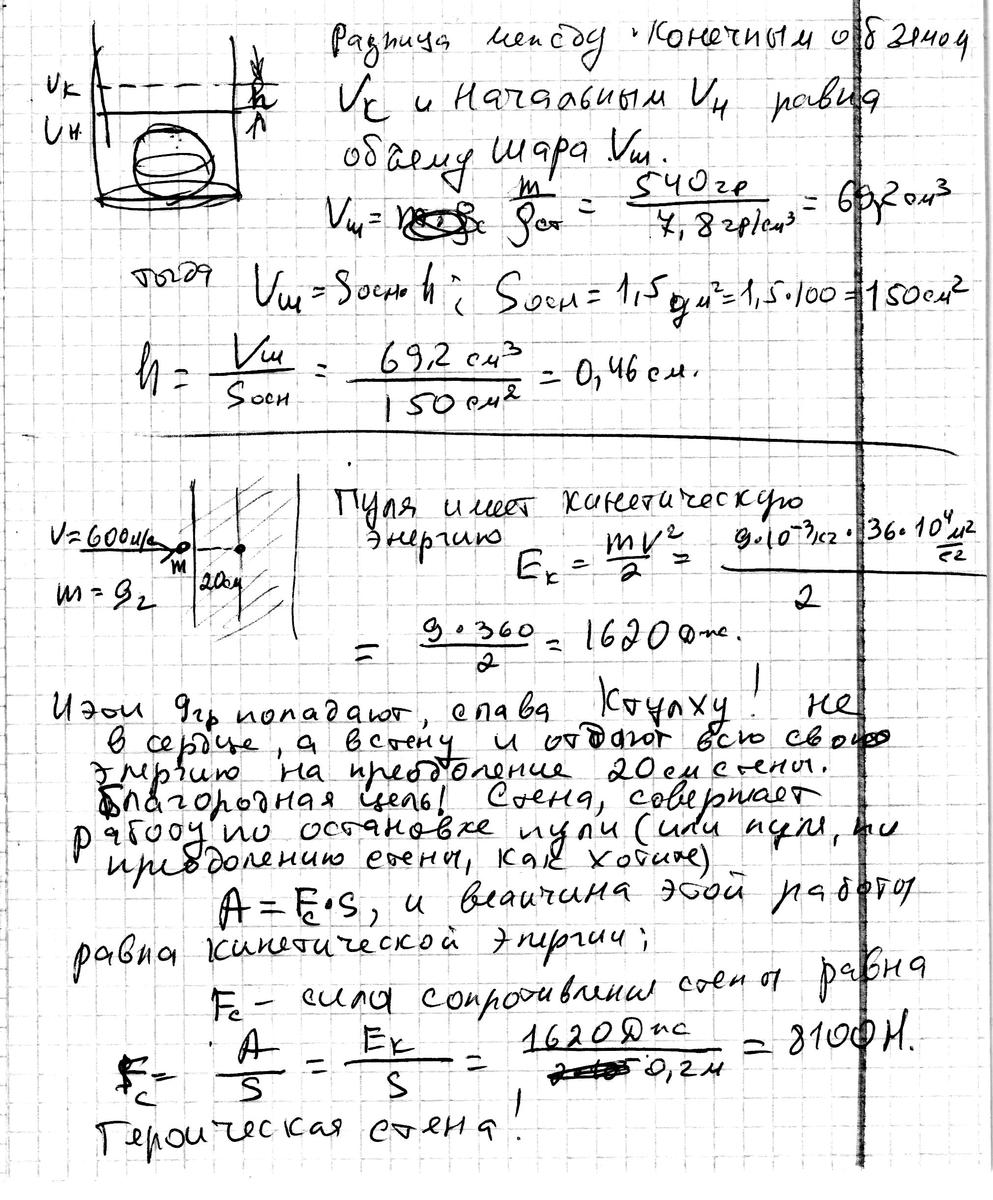 Разница между конечным объемом
Vк и начальным Vн равна
объему шара Vш.
Vк
Vн
h
Vш = m/ρст = 540гр/7,8гр/см³ = 69,2 см³
тогда Vш = Sосн·h; Sосн = 1,5 дм² = 1,5·100 = 150см²
h = Vш/Sосн = 69,2 см³/150 см² = 0,46 см.
Пуля имеет кинетическую
энергию
V=600м/с
m
20см
m = 9г
Eк = mV²/2 = 9·10⁻³кг·36·10⁴м²/с²/2
= 9·360/2 = 1620 Дж.
И эти 9гр попадают, слава Ктулху! не
в сердце, а в стену и отдают всю свою
энергию на преодоление 20см стены.
Благородная цель! Стена, совершает
работу по остановке пули (или пуля, по
преодолению стены, как хотите)
A = Fс·S, и величина этой работы
равна кинетической энергии;
Fс - сила сопротивления стены равна
Fс = A/S = Eк/S = 1620Дж/0,2м = 8100Н.
Героическая стена!